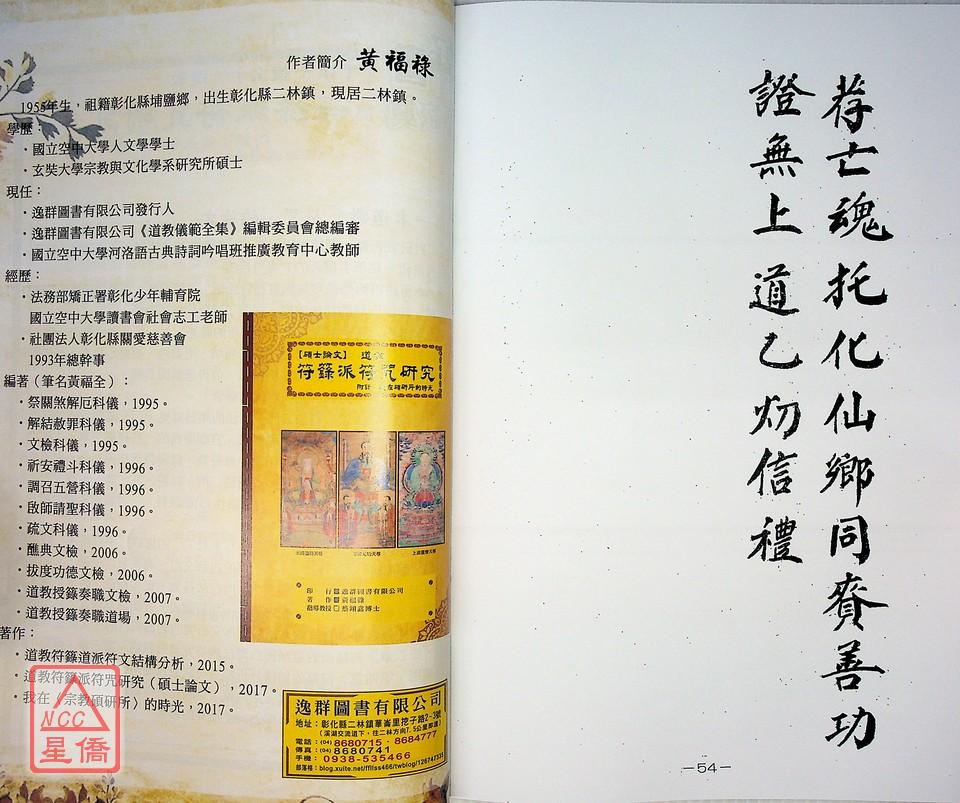 作者簡介 黃福祿
1955年生，祖籍彰化縣埔鹽鄉，出生彰化縣二林鎮，現居二林鎮。
學歷：
・國立空中大學人文學學士
・玄奘大學宗教與文化學系研究所碩士
現任：
・逸群圖書有限公司發行人
・逸群圖書有限公司《道教儀範全集》編輯委員會總編審
・國立空中大學河洛語古典詩詞吟唱班推廣教育中心教師
經歷：
・法務部矯正署彰化少年輔育院
國立空中大學讀書會社會志工老師
・社團法人彰化縣關愛慈善會
1993年總幹事
編著（筆名黃福全）：
・祭關煞解厄科儀，1995。
・解結赦罪科儀，1995。
・文檢科儀，1995。
・祈安禮斗科儀，1996。
・調召五營科儀，1996。
・啟師請聖科儀，1996。
・疏文科儀，1996。
・醮典文檢，2006。
・拔度功德文檢，2006。
・道教授籙奏職文檢，2007。
・道教授籙奏職道場，2007。
著作：
・道教符籙道派符文結構分析，2015。
・道教符籙派符咒研究（碩士論文），2017。
・我在〈宗教碩研所〉的時光，2017。
【碩士論文】 道教
符籙派符咒研究
印 行 逸群圖書有限公司
著 作 黃福祿
指導教授 蔡翊鑫博士
逸群圖書有限公司
地址：彰化縣二林鎮華崙里挖子路2-3號
（溪湖交流道下，往二林方向7.5公里即達）
電話：(04) 8680715．8684777
傳真：(04) 8680741
手機：0938-535466
部落格：blog.xuite.net/ffllss466/twblog/126747335
NCC
星僑
荐亡魂托化仙鄉同賚善功
證無上道乙炏信禮
—54—